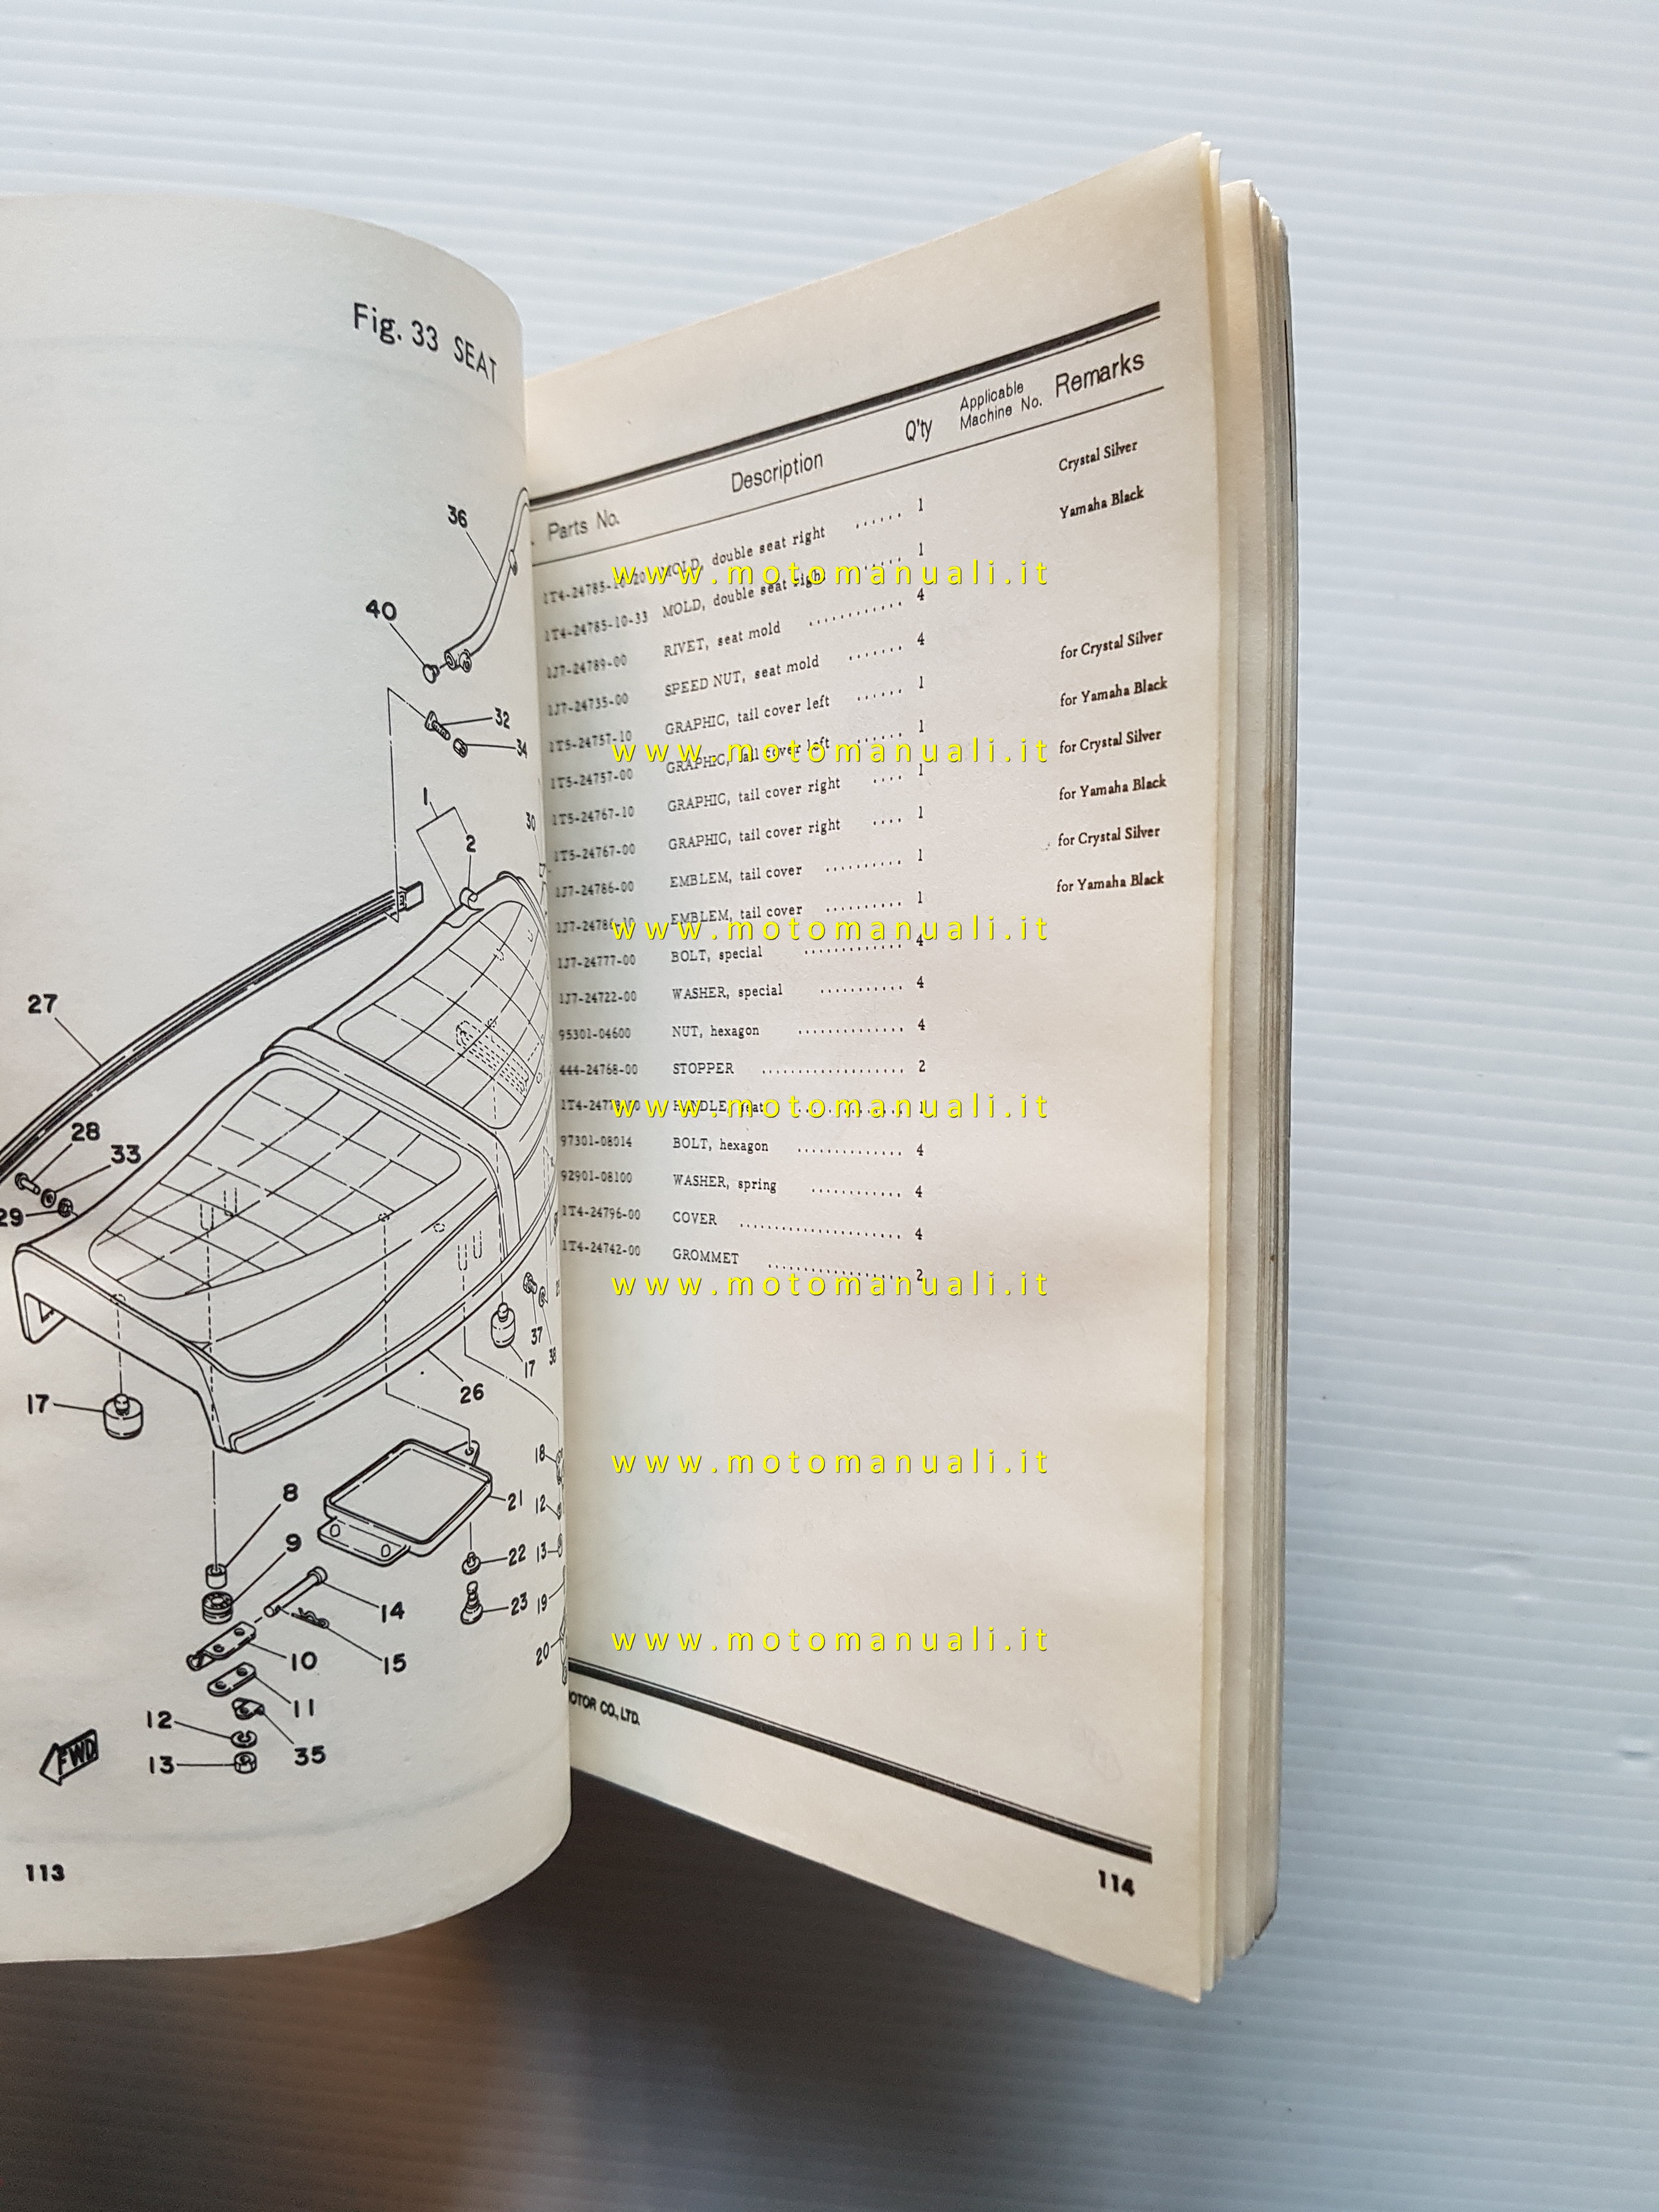 Fig. 33 SEAT
36
40
32
34
1
2
30
27
28
33
29
37
38
17
26
17
18
8
21
12
9
22
13
14
23
19
10
15
20
11
12
35
13
FWD
113
Parts No. Description Q'ty Applicable Machine No. Remarks
1T4-24785-10-20 MOLD, double seat right ...... 1 Crystal Silver
1T4-24785-10-33 MOLD, double seat right ...... 1 Yamaha Black
1J7-24789-00 RIVET, seat mold ............ 4
1J7-24735-00 SPEED NUT, seat mold ....... 4
1T5-24757-10 GRAPHIC, tail cover left ...... 1 for Crystal Silver
1T5-24757-00 GRAPHIC, tail cover left ...... 1 for Yamaha Black
1T5-24767-10 GRAPHIC, tail cover right .... 1 for Crystal Silver
1T5-24767-00 GRAPHIC, tail cover right .... 1 for Yamaha Black
1J7-24786-00 EMBLEM, tail cover .......... 1 for Crystal Silver
1J7-24786-10 EMBLEM, tail cover .......... 1 for Yamaha Black
1J7-24777-00 BOLT, special ............. 4
1J7-24722-00 WASHER, special ........... 4
95301-04600 NUT, hexagon .............. 4
444-24768-00 STOPPER ................... 2
HANDLE, seat .............. 1
97301-08014 BOLT, hexagon ............. 4
92901-08100 WASHER, spring ............ 4
1T4-24796-00 COVER ..................... 4
1T4-24742-00 GROMMET .................. 2
MOTOR CO., LTD.
114
www.motomanuali.it
www.motomanuali.it
www.motomanuali.it
www.motomanuali.it
www.motomanuali.it
www.motomanuali.it
www.motomanuali.it